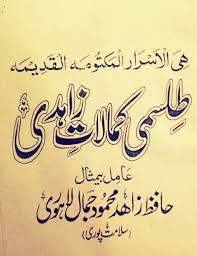 هی الاسرار المکتومه القدیمه
طلسمی کمالات زاهدی
عامل بیمثال
حافظ زاهد محمود جمال لاہوری
(سلامت پوری)